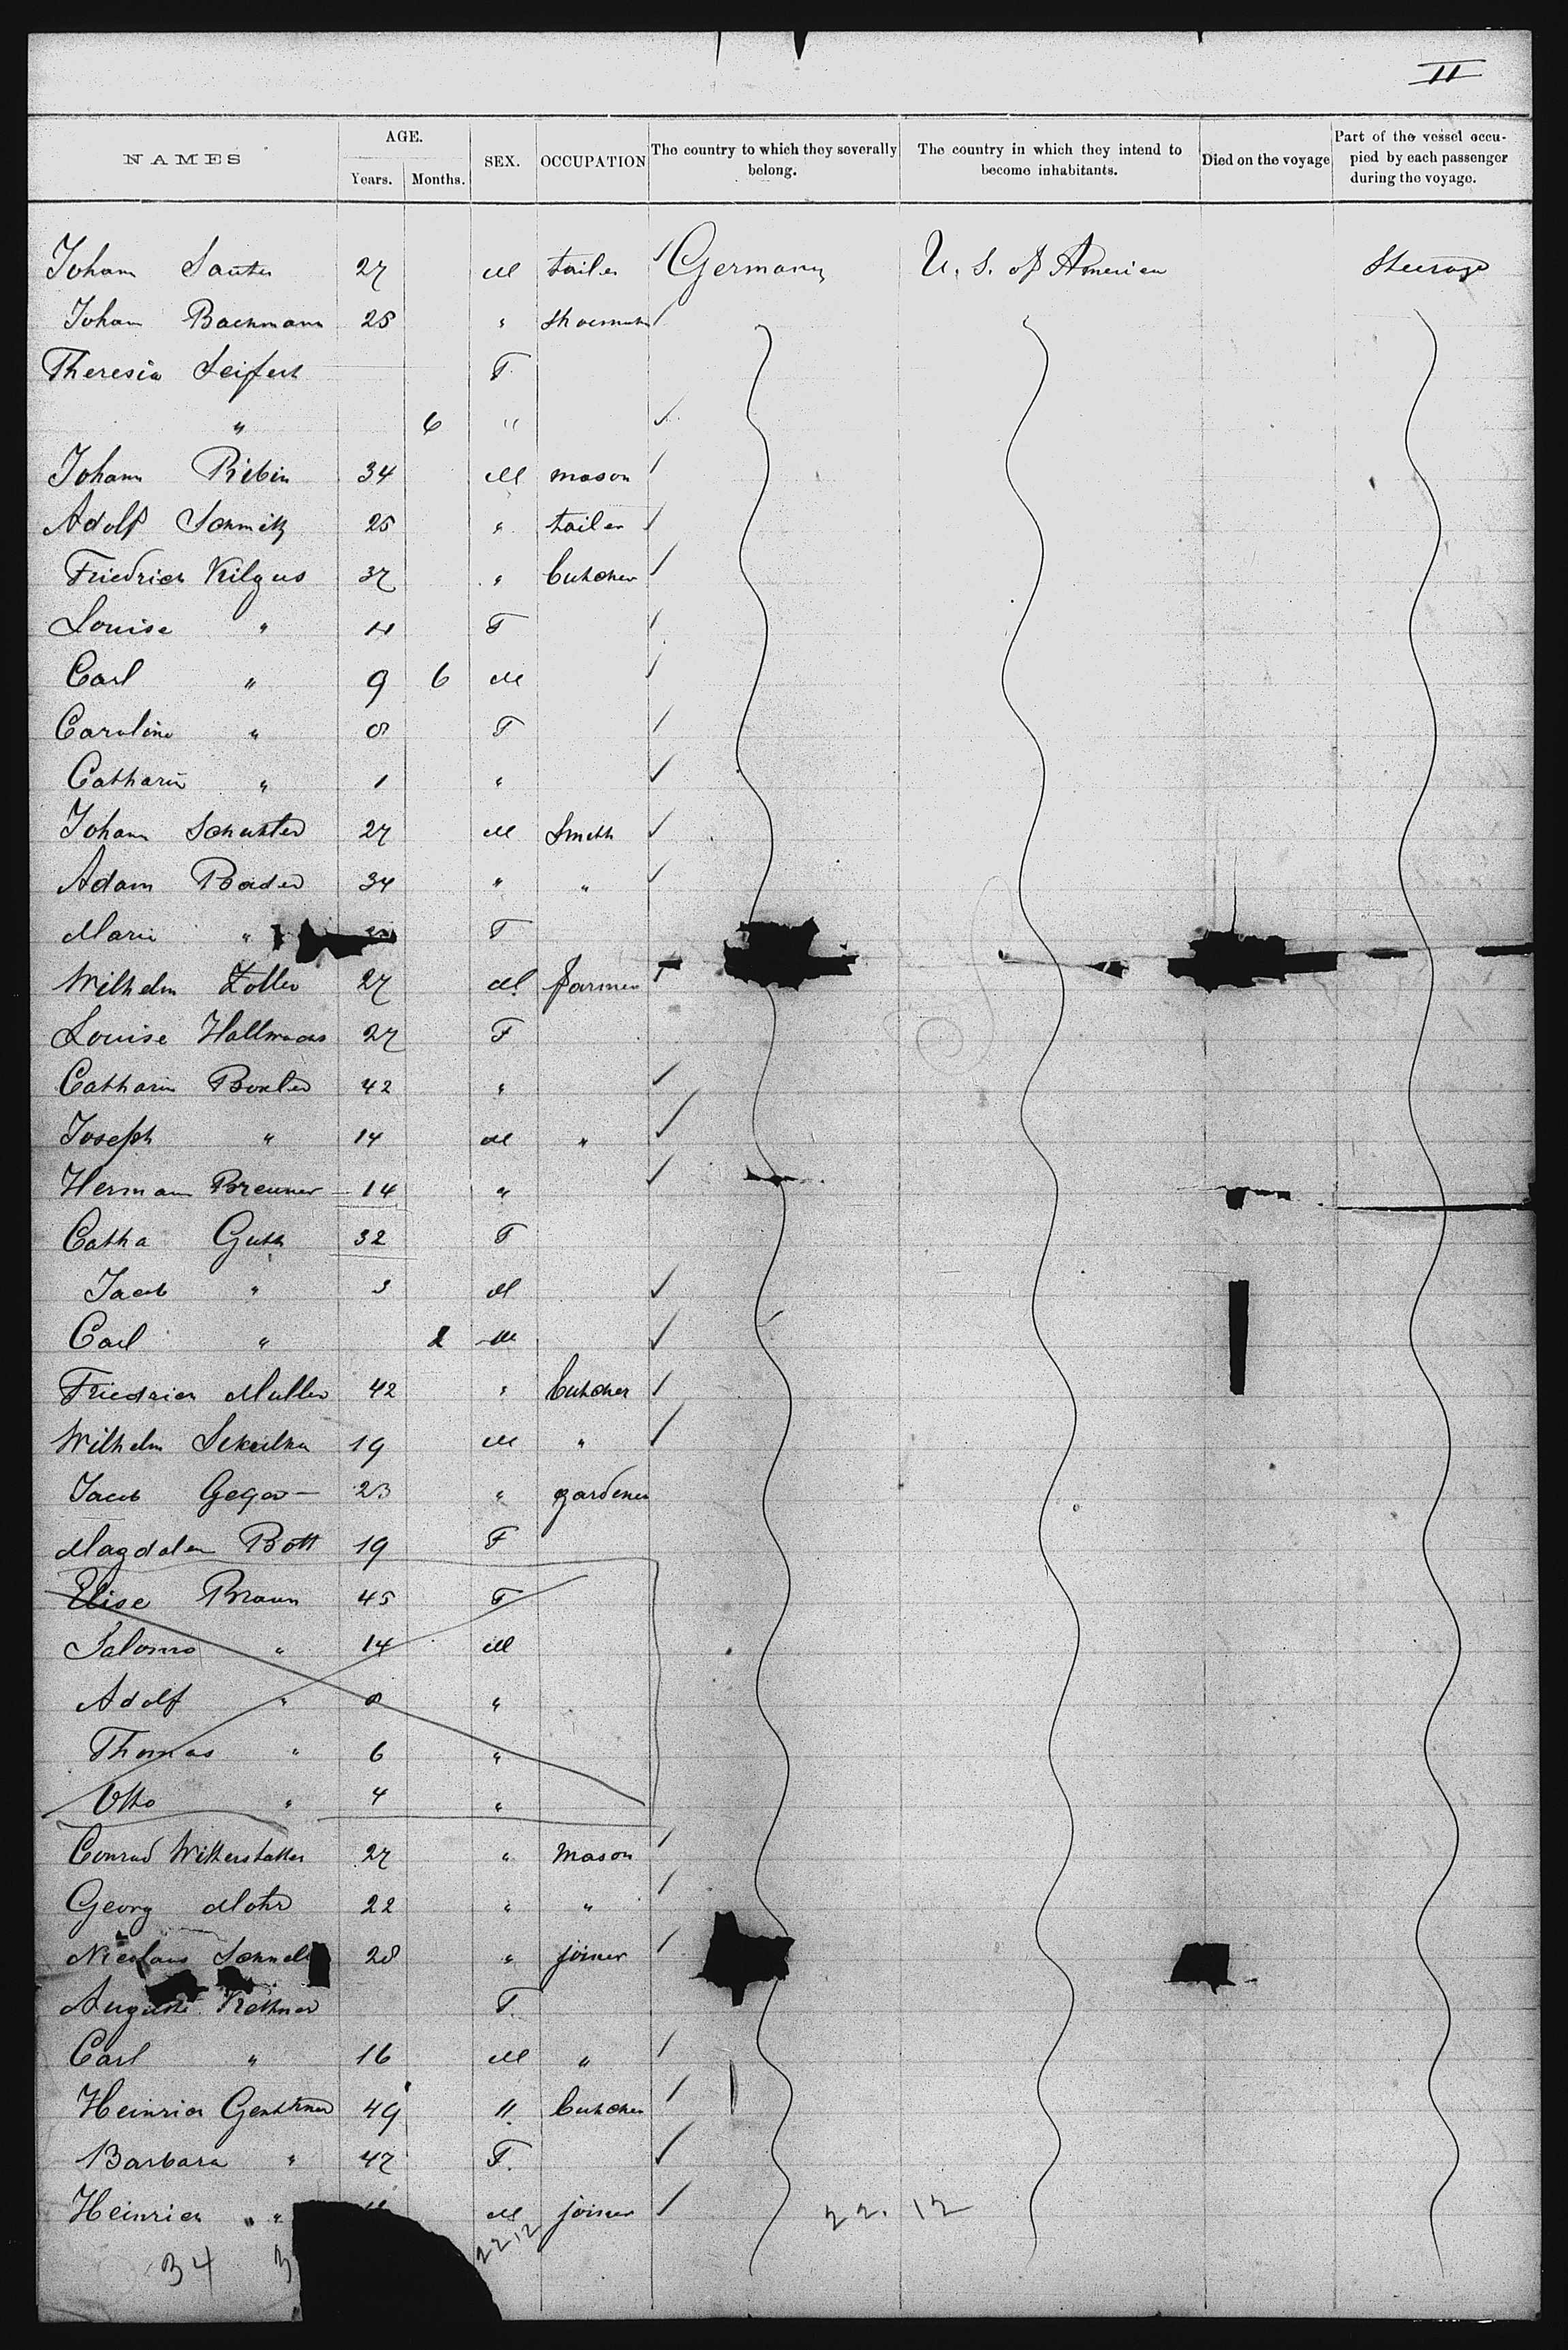 II
NAMES AGE. Years. Months. SEX. OCCUPATION The country to which they severally belong. The country in which they intend to become inhabitants. Died on the voyage Part of the vessel occupied by each passenger during the voyage.
Johann Sauter 27 M tailer Germany U. S. of America Steerage
Johann Bachmann 25 " shoemak
Theresia Seifert F
" 6 "
Johann 34 M mason
Adolf Schmitz 25 " tailer
Friedrich Kilgus 37 " butcher
Louise " F
Carl " 9 6 M
Caroline " 8 F
Catharin " 1 "
Johann Schuster 27 M Smith
Adam Bader 34 " "
Marie " F
Wilhelm Zoller 27 M farmer
Louise 27 F
Catharin 42 "
Joseph " 14 M "
Hermann Brenner 14 "
Catha Guth 32 F
Jacob " 3 M
Carl " 2 M
Friedrich Muller 42 " butcher
Wilhelm 19 M "
Jacob 23 " gardener
Magdalen Bott 19 F
Elise Braun 45 F
14 M
Adolf " 8 "
Thomas " 6 "
Otto " 4 "
Conrad Witterstatter 27 " Mason
Georg Mohr 22 " "
Nicolaus 28 " joiner
Auguste F.
Carl " 16 M "
Heinrich 49 " butcher
Barbara " 47 F.
Heinrich " M joiner
22 12
22. 12
34 3